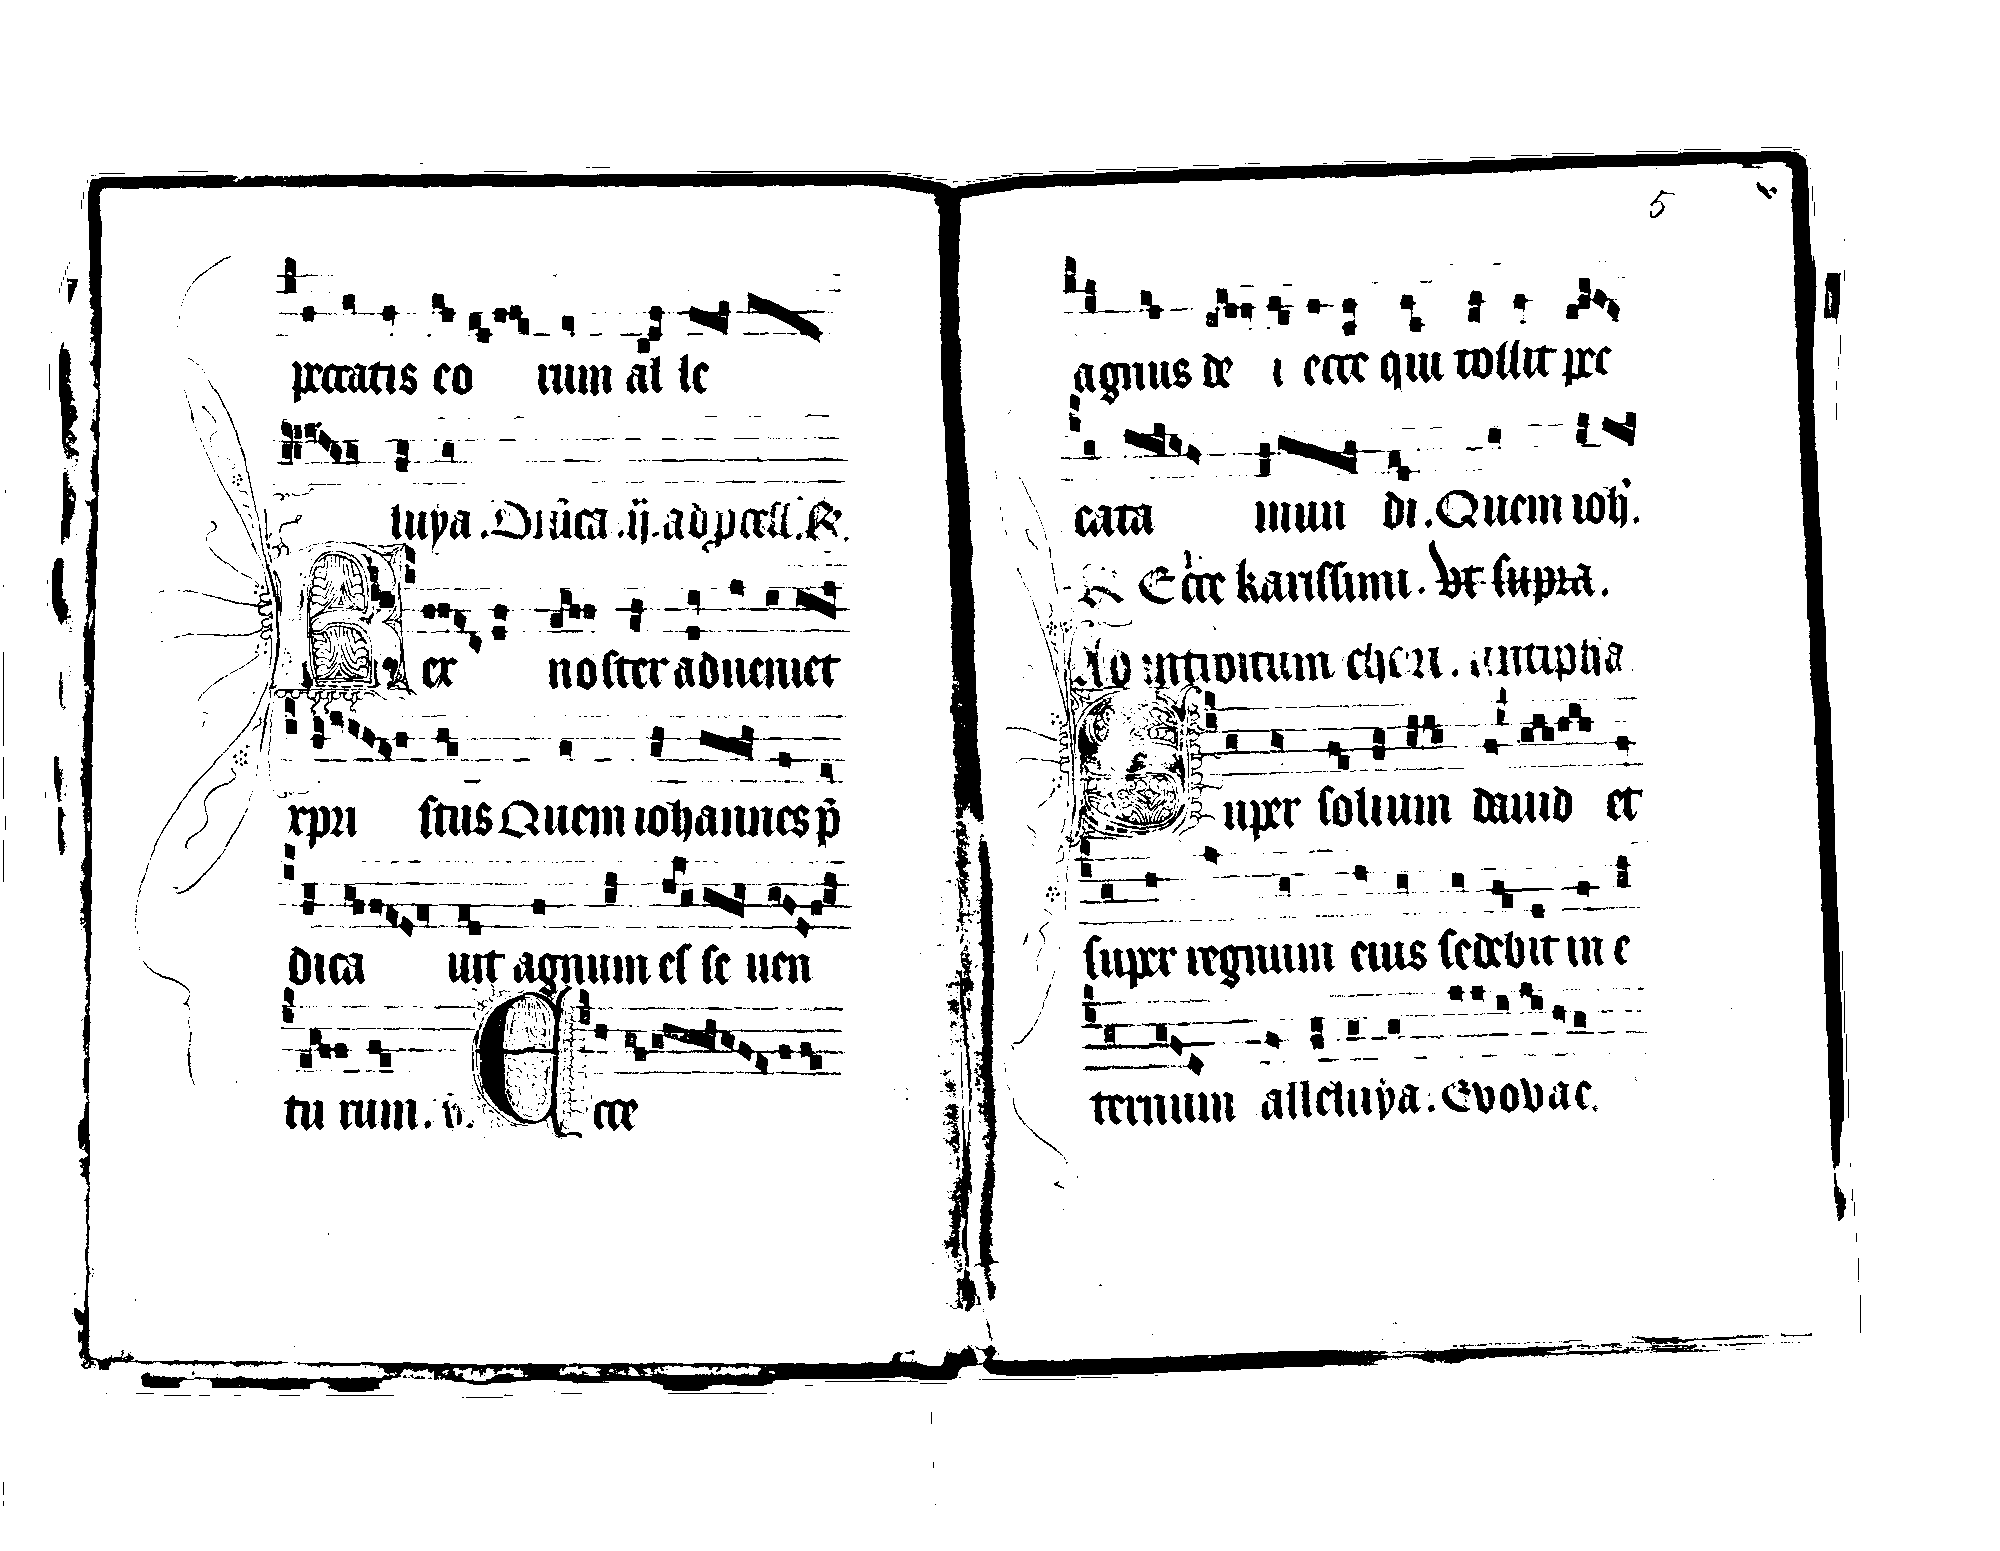 peccatis eo rum al le
luya. Dn̄ica .ij. ad p̱cess̄. R.
Rex noster adueniet
xpri stus Quem iohannes p̄
dica uit agnum es se uen
tu rum. v. Ecce
5
agnus de i ecce qui tollit pec
cata mun di. Quem ioh̄.
R Ecce karissimi. vt supra.
Ad introitum chori. antipha
Super solium dauid et
super regnum eius sedebit in e
ternum alleluya. Evovae.